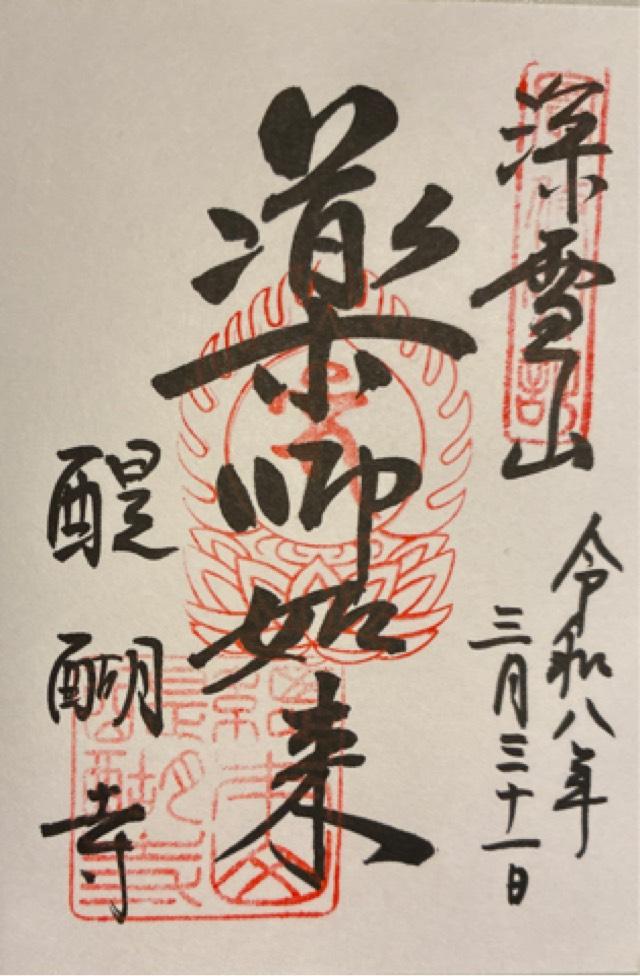 深雪山
令和八年
三月三十一日
薬師如来
醍醐寺